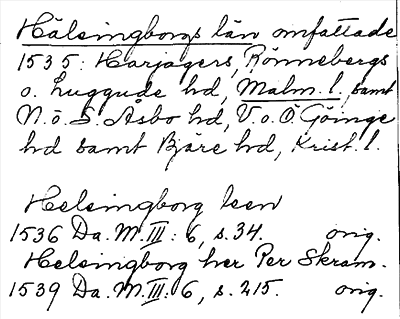 Hälsingborgs län omfattade
1535: Harjagers, Rönnebergs
o. Luggude hd, Malm. l., samt
N. o. S. Åsbo hd, V. o. Ö Göinge
hd samt Bjäre hd, Krist. l.
Helsingborg leen
1536 Da. M. III: 6, s. 34. orig.
Helsingborg her Per Skram.
1539 Da. M. III: 6, s. 215. orig.